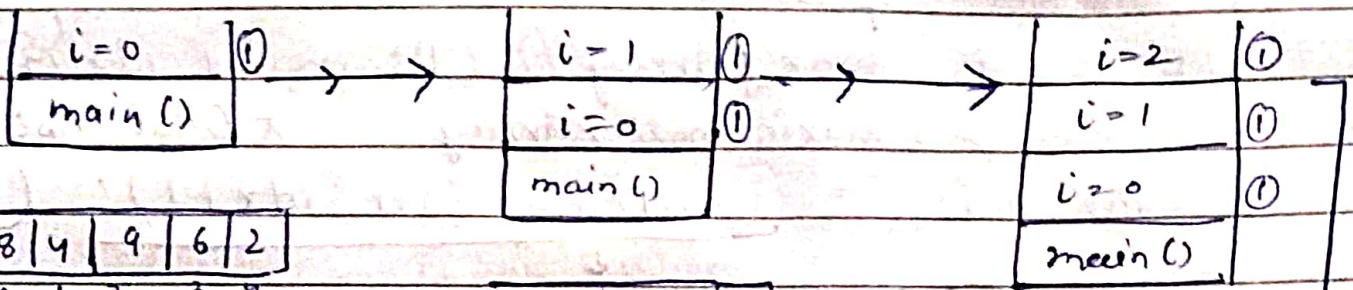 i=0 ①
main ()
i=1 ①
i=0 ①
main ()
i=2 ①
i=1 ①
i=0 ①
main ()
8 | 4 | 9 | 6 | 2